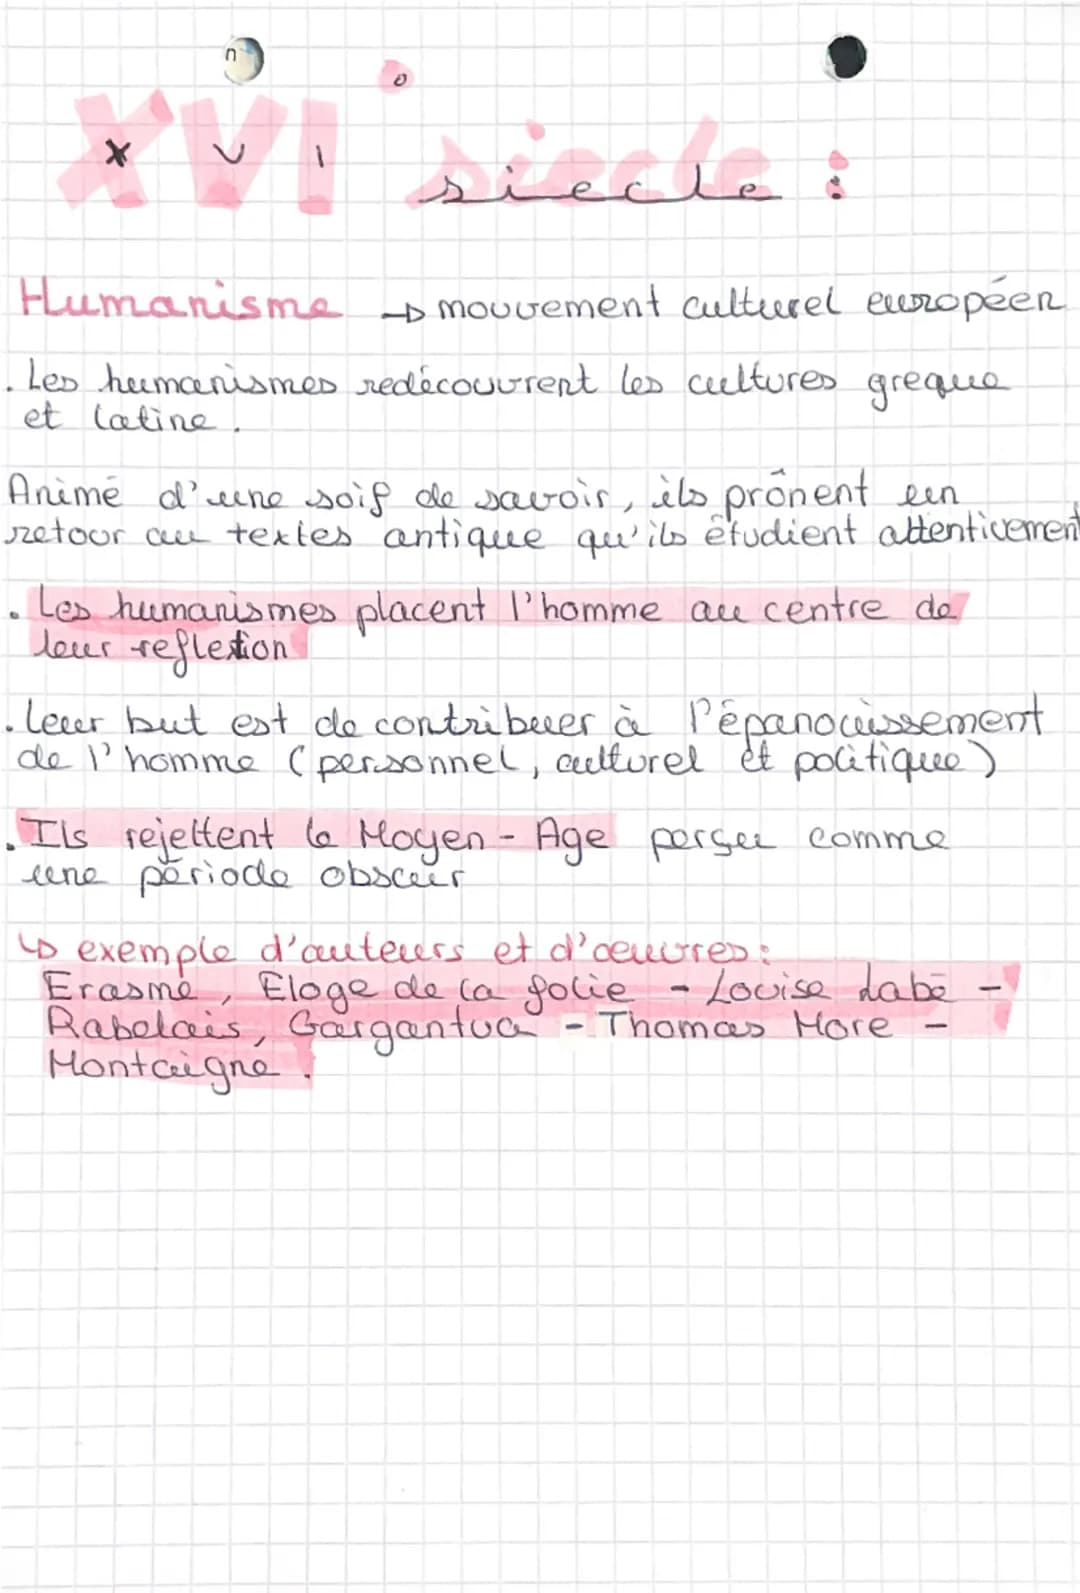 XVI° siecle :
Humanisme → mouvement culturel européen
. Les humanismes redécouvrent les cultures greque
et latine.
Animé d'une soif de savoir, ils prônent un
retour au textes antique qu'ils étudient attentivement
. Les humanismes placent l'homme au centre de
leur reflextion
. leur but est de contribuer à l'épanouissement
de l'homme (personnel, culturel et politique)
. Ils rejettent le Moyen-Age perçu comme
une période obscur
↳ exemple d'auteurs et d'œuvres :
Erasme, Eloge de la folie - Louise Labé -
Rabelais, Gargantua - Thomas More -
Montaigne.